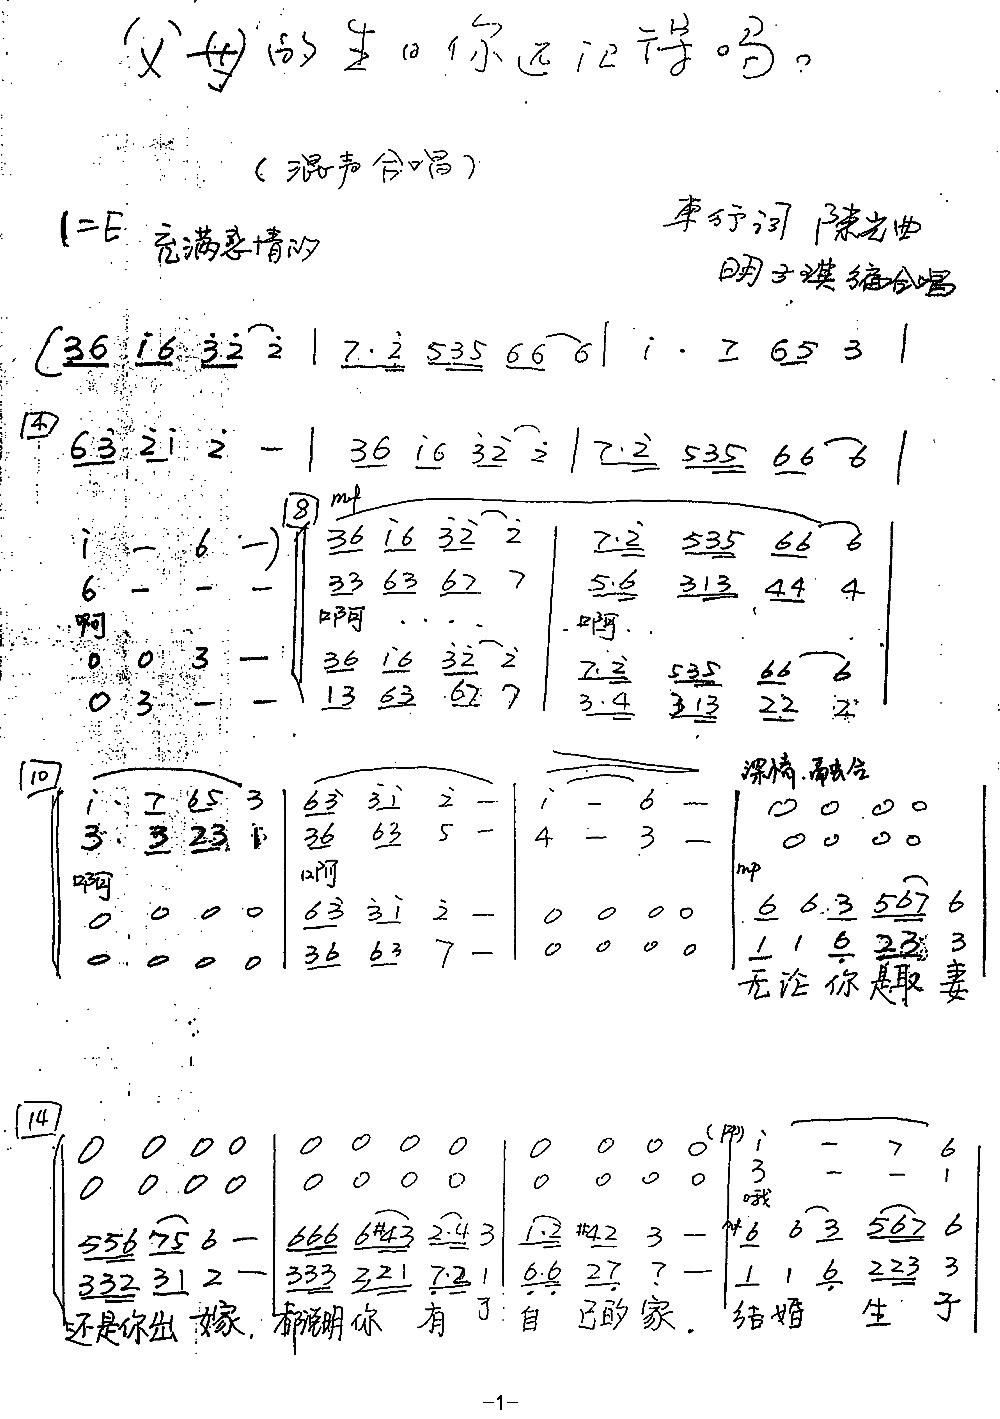 父母的生日你还记得吗。
（混声合唱）
1=E 充满感情的
车行词 陈光曲
明子琪编合唱
(36 i6 3̇2̇ 2̇ | 7·2̇ 535 66 6 | i · 7 65 3 |
4
63̇ 2̇i 2̇ — | 36 i6 3̇2̇ 2̇ | 7·2̇ 535 66 6 |
8 mp
i — 6 —) 36 i6 3̇2̇ 2̇ | 7·2̇ 535 66 6 |
6 — — — 33 63 67 7 | 5·6 313 44 4
啊 啊 · · · · 啊 · ·
0 0 3 — 36 i6 3̇2̇ 2̇ | 7·2̇ 535 66 6
0 3 — — 13 63 67 7 | 3·4 313 22 2
10 深情.融合
i · 7 65 3 | 63̇ 3̇i 2̇ — | i — 6 — | 0 0 0 0
3 · 3 23 1 | 36 63 5 — | 4 — 3 — | 0 0 0 0
啊 啊 mp
0 0 0 0 | 63̇ 3̇i 2̇ — | 0 0 0 0 | 6 6 3 567 6
0 0 0 0 | 36 63 7 — | 0 0 0 0 | 1 1 6̣ 223 3
无论你是取妻
14
0 0 0 0 | 0 0 0 0 | 0 0 0 0 | (pp) i — 7 6
0 0 0 0 | 0 0 0 0 | 0 0 0 0 | 3 — — 1
哦
556 75 6 — | 666 6#43 2·4 3 | 1·2 #42 3 — | 6 6 3 567 6
332 31 2 — | 333 221 7̣·2 1 | 6̣·6̣ 27̣ 7̣ — | 1 1 6̣ 223 3
还是你出嫁, 都说明你 有了 自己的家. 结婚 生子
-1-